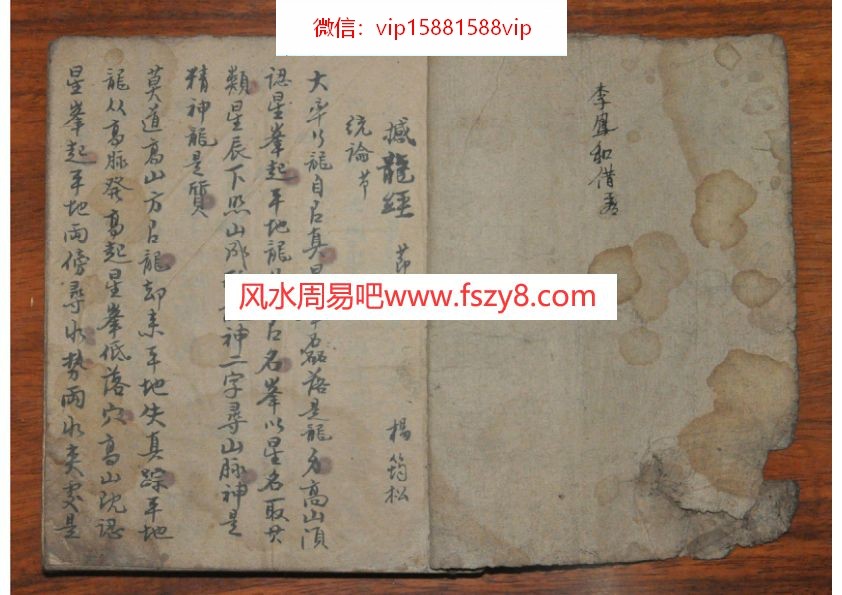 微信：vip15881588vip
李鳳和借
撼龍經 節 楊筠松
統論節
大率行龍自有真星 磊落是龍身高山須
认星峯起平地龍 有名峯以星名取其
類星辰下照山成 神二字尋山脉神是
精神龍是質
莫道高山方有龍却来平地失真踪平地
龍从高脉發高起星峯低落穴高山既認
星峯起平地兩傍尋水勢兩水夾處是
风水周易吧www.fszy8.com